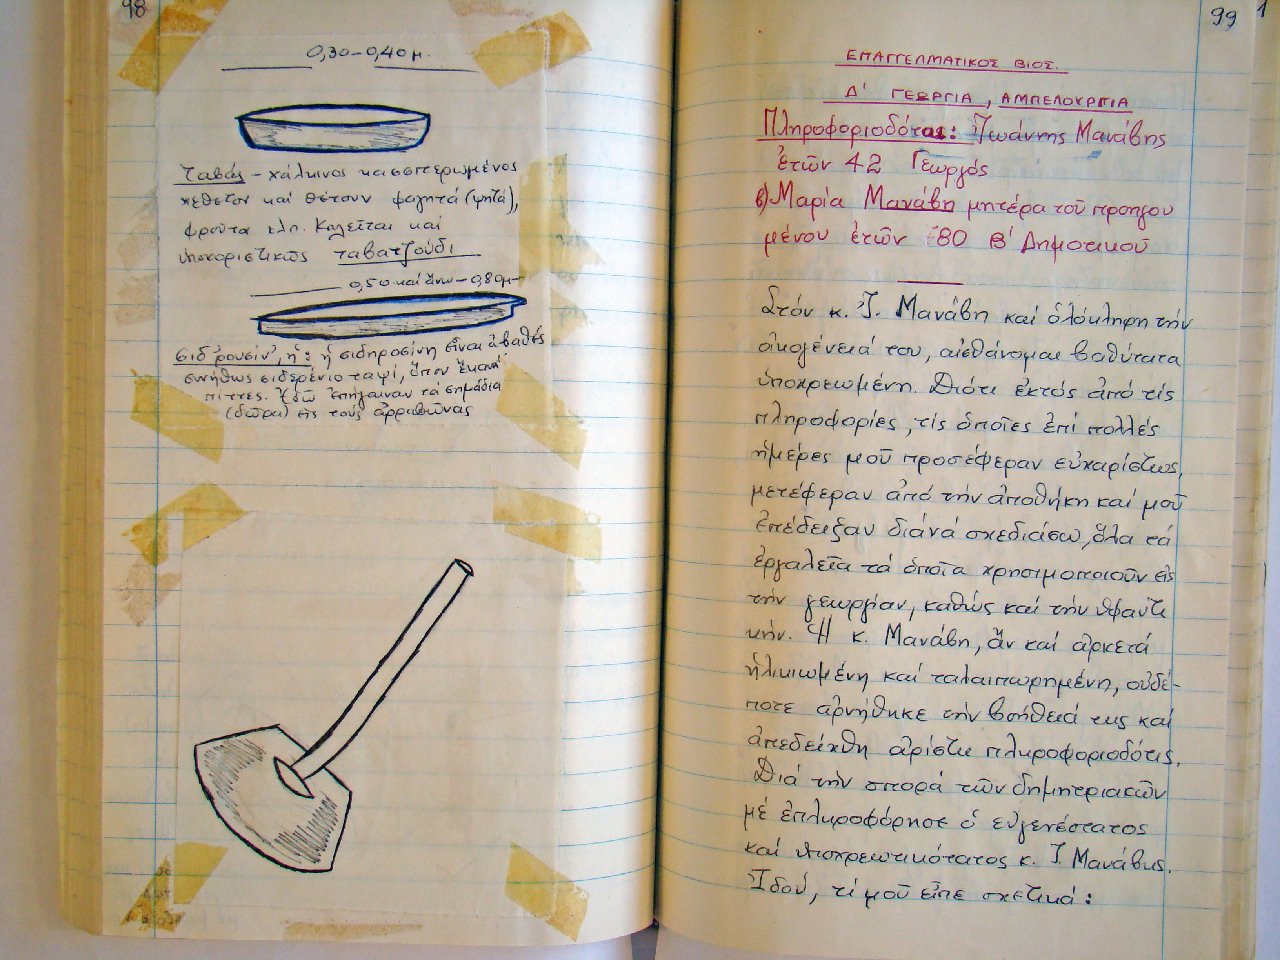 98
0,30-0,40 μ.
ταβάς - χάλκινος κασσιτερωμένος
καί θέτουν φαγητά (ψητά),
φρούτα κλπ. Καλεῖται καί
ὑποκοριστικῶς ταβατζούδι
0,50 καί ἄνω - 0,80μ
σιδ'ρουσίν', ἡ : ἡ σιδηροσίνη εἶναι ἀβαθές
συνήθως σιδερένιο ταψί, ὅπου ἔκαναν
πίττες. Ἐδῶ ἐπήγαιναν τά σημάδια
(δῶρα) εἰς τούς ἀρραβῶνας
99
ΕΠΑΓΓΕΛΜΑΤΙΚΟΣ ΒΙΟΣ.
Δ' ΓΕΩΡΓΙΑ, ΑΜΠΕΛΟΥΡΓΙΑ
Πληροφοριοδόται: Ἰωάννης Μανάβης
ἐτῶν 42 Γεωργός
β) Μαρία Μανάβη μητέρα τοῦ προηγου
μένου ἐτῶν 80 Β' Δημοτικοῦ
Στόν κ. Ἰ. Μανάβη καί ὁλόκληρη τήν
οἰκογένειά του, αἰσθάνομαι βαθύτατα
ὑποχρεωμένη. Διότι ἐκτός ἀπό τίς
πληροφορίες, τίς ὁποῖες ἐπί πολλές
ἡμέρες μοῦ προσέφεραν εὐχαρίστως,
μετέφεραν ἀπό τήν ἀποθήκη καί μοῦ
ἐπέδειξαν διά νά σχεδιάσω, ὅλα τά
ἐργαλεῖα τά ὁποῖα χρησιμοποιοῦν εἰς
τήν γεωργίαν, καθώς καί τήν ὑφαντι
κήν. Ἡ κ. Μανάβη, ἄν καί ἀρκετά
ἡλικιωμένη καί ταλαιπωρημένη, οὐδέ-
ποτε ἀρνήθηκε τήν βοήθειά της καί
ἀπεδείχθη ἀρίστη πληροφοριοδότις.
Διά τήν σπορά τῶν δημητριακῶν
μέ ἐπληροφόρησε ὁ εὐγενέστατος
καί ὑποχρεωτικότατος κ. Ἰ. Μανάβης.
Ἰδού, τί μοῦ εἶπε σχετικά :